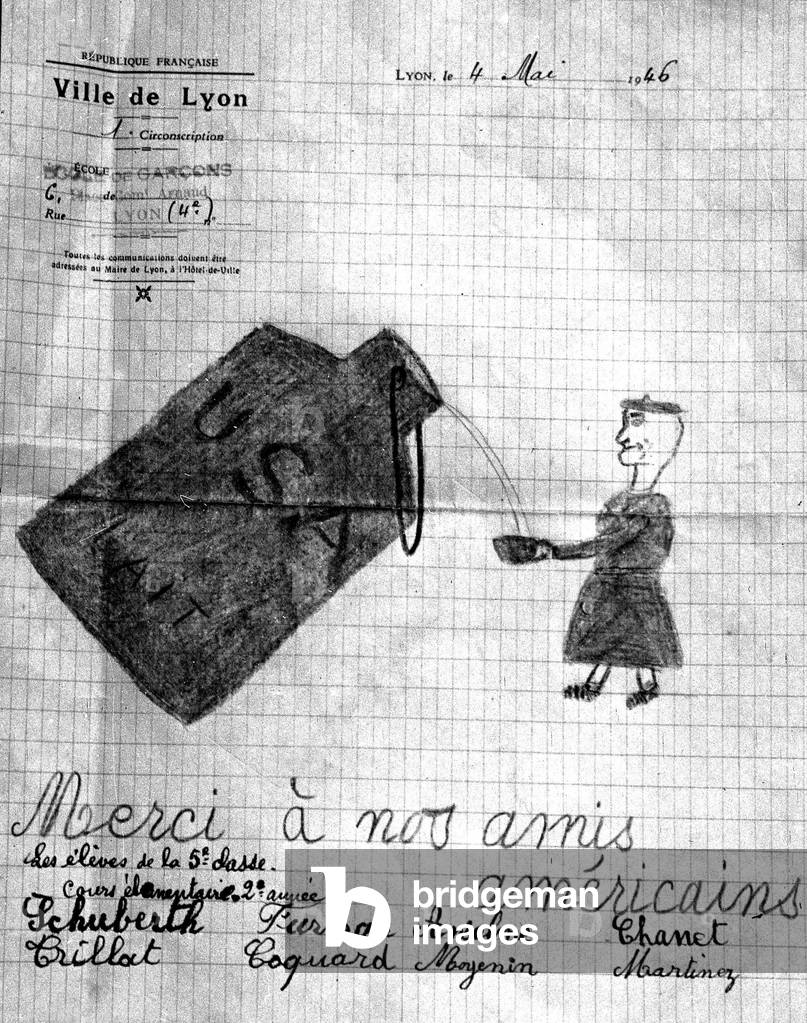 RÉPUBLIQUE FRANÇAISE
Ville de Lyon
1e Circonscription
ÉCOLE DE GARÇONS
6, de Comt Arnaud
Rue LYON (4e).
Toutes les communications doivent être
adressées au Maire de Lyon, à l'Hôtel-de-Ville
LYON, le 4 Mai 1946
USA
LAIT
Merci à nos amis
américains
Les élèves de la 5e classe.
Cours élementaire 2e année
Schuberth Chanet
Trillat Coquard Moyenin Martinez
b bridgeman
images